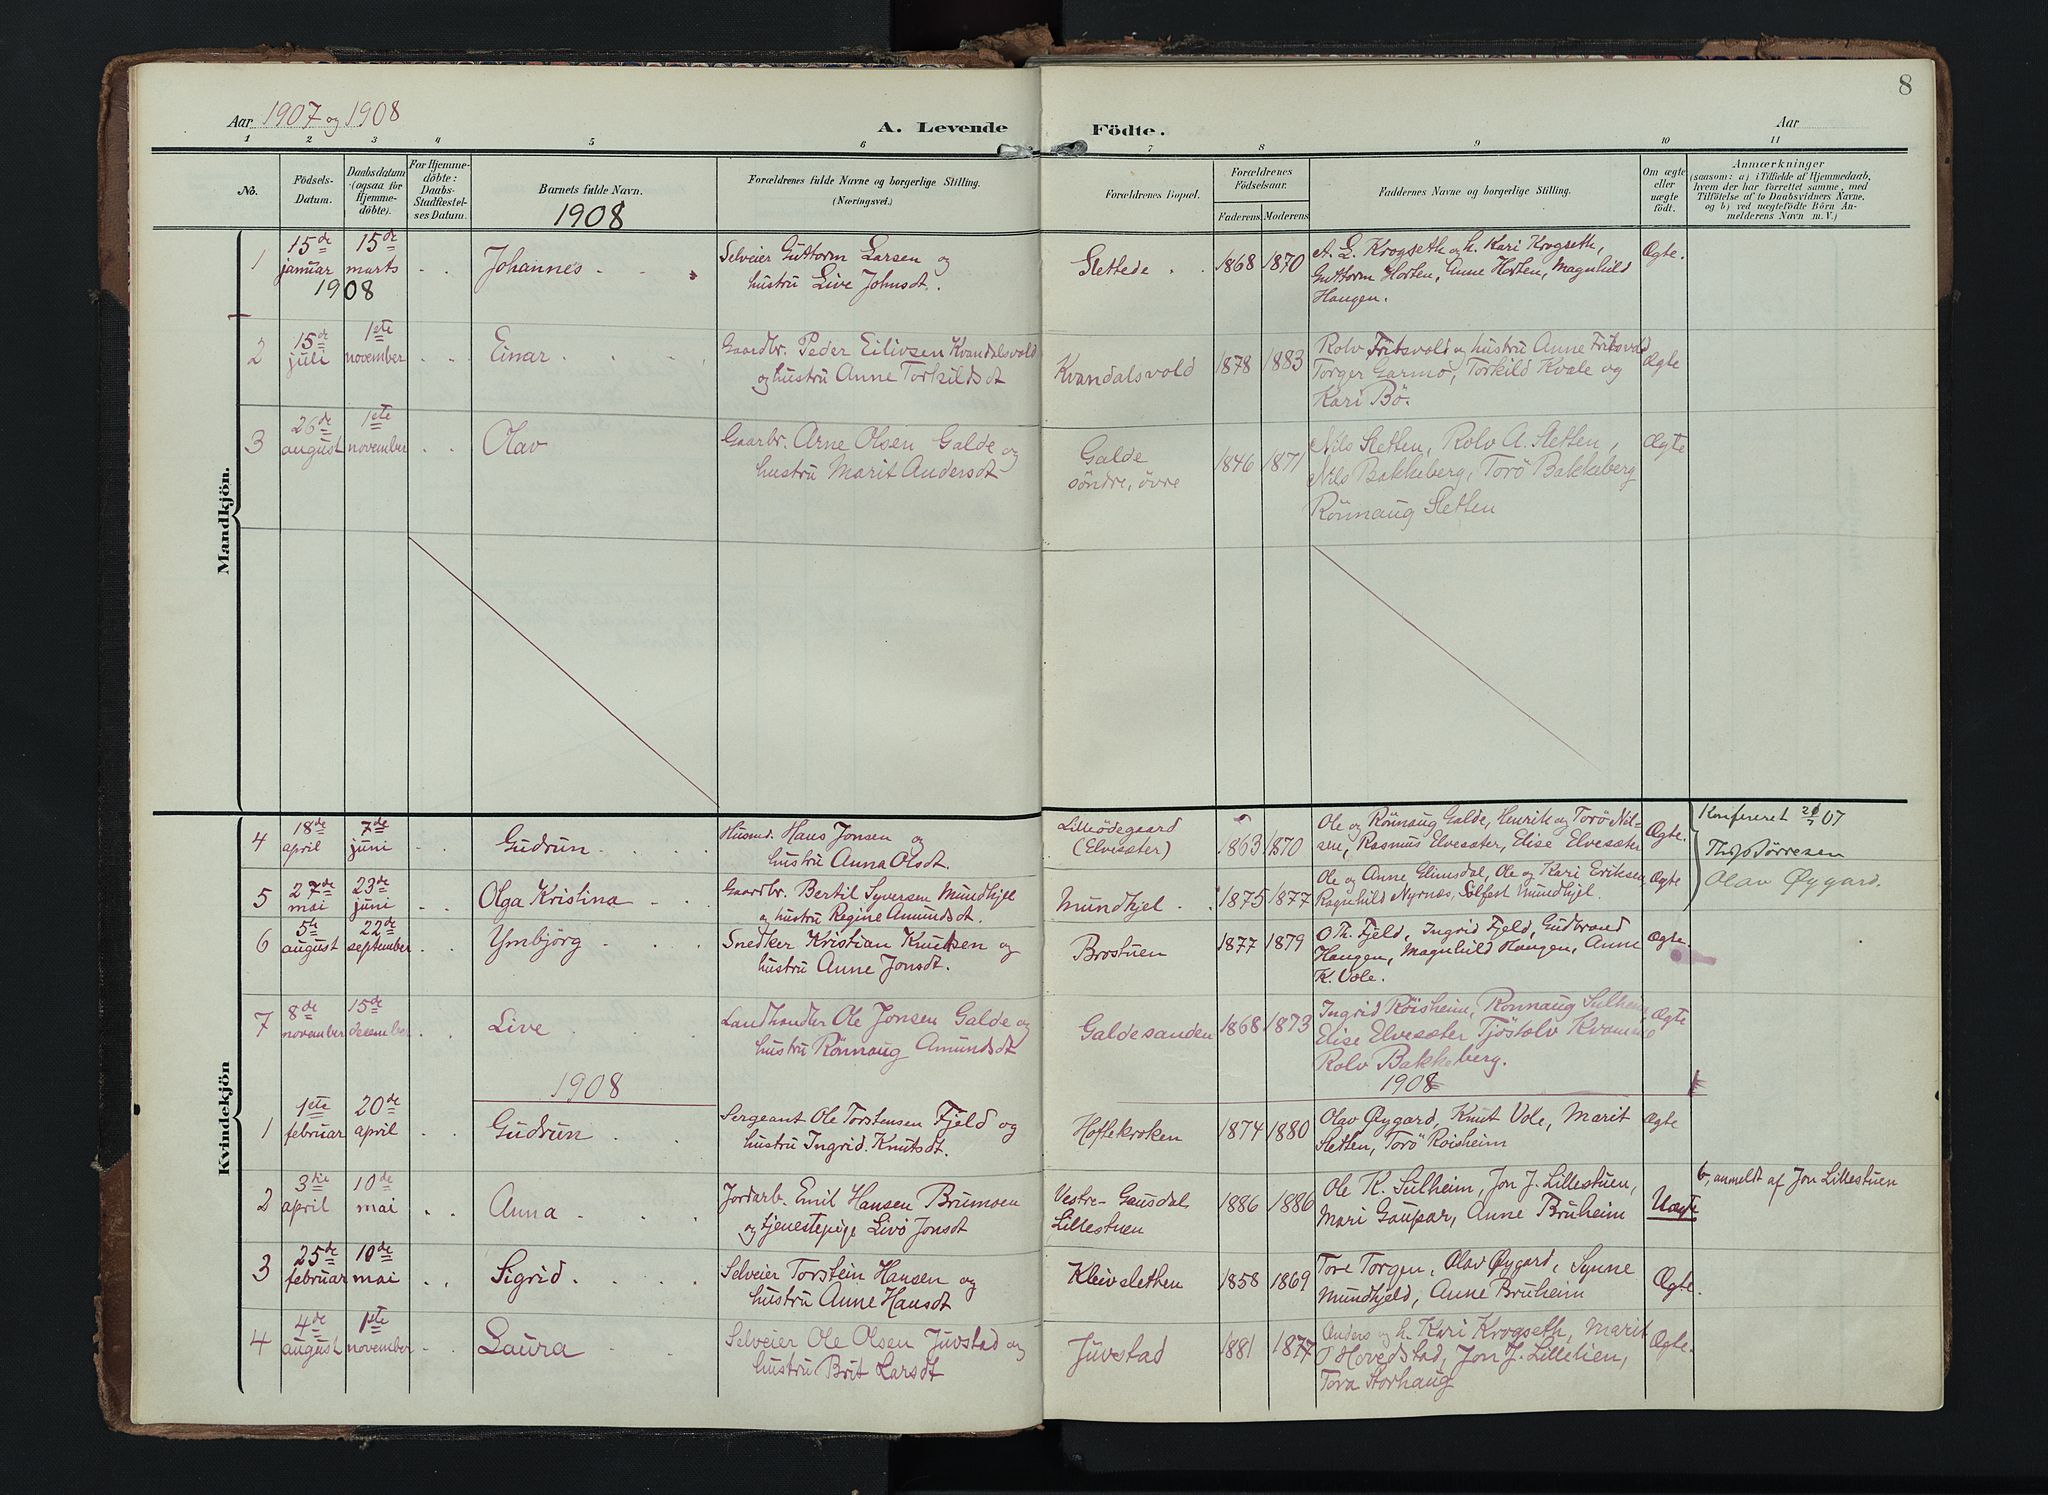 8
Aar 1907 og 1908
A. Levende Födte.
Aar
1 2 3 4 5 6 7 8 9 10 11
No.
Födsels-Datum.
Daabsdatum (ogsaa for Hjemme-döbte).
For Hjemme-döbte: Daabs-Stadfæstel-ses Datum.
Barnets fulde Navn.
Forældrenes fulde Navne og borgerlige Stilling.
(Næringsvei.)
Forældrenes Bopæl.
Forældrenes Födselsaar.
Faderens Moderens
Faddernes Navne og borgerlige Stilling.
Om ægte eller uægte födt.
Anmærkninger
(saasom: a) i Tilfælde af Hjemmedaab,
hvem der har forrettet samme, med
Tilföielse af to Daabsvidners Navne,
og b) ved uægtefödte Börn An-
melderens Navn m. V.)
1908
Mandkjön.
1 15de januar 1908 15de marts Johannes
Selveier Guttorm Larsen og
hustru Live Johnsdt.
Slettede 1868 1870
A. L. Krogseth og h. Kari Krogseth,
Guttorm Horten, Anne Horten, Magnhild
Haugen.
Ægte.
2 15de juli 1ste november Einar
Gaardbr. Peder Eilivsen Kvandalsvold
og hustru Anne Torkildsdt
Kvandalsvold 1878 1883
Rolv Fritsvold og hustru Anne Fritsvold
Torger Garmo, Torkild Kvale og
Kari Bö.
Ægte
3 26de august 1ste november Olav
Gaarbr. Arne Olsen Galde og
hustru Marit Andersdt
Galde
söndre, övre
1846 1871
Nils Sletten, Rolv A. Sletten,
Nils Bakkeberg, Torö Bakkeberg
Rönnaug Sletten
Ægte
Kvindekjön
4 18de april 7de juni Gudrun
Husmd. Hans Jonsen og
hustru Anna Olsdt.
Lilleödegaard
(Elvesæter)
1863 1870
Ole og Rönnaug Galde, Henrik og Torö Nil-
sen, Rasmus Elvesæter, Elise Elvesæter
Ægte.
Konfereret 07
Olav Øygard.
5 27de mai 23de juni Olga Kristina
Gaardbr. Bertil Syversen Mundhjel
og hustru Regine Amundsdt.
Mundhjel 1875 1877
Ole og Anne Glimsdal, Ole og Kari Eriksen
Ragnhild Nyrnæs, Solfest Mundhjel.
Ægte
6 5te august 22de september Ymbjörg
Snedker Kristian Knutsen og
hustru Anne Jonsdt.
Brostuen 1877 1879
O. Th. Fjeld, Ingrid Fjeld, Gudbrand
Haugen, Magnhild Haugen, Anne
K. Vole.
Ægte.
7 8de november 15de december Live
Landhandler Ole Jonsen Galde og
hustru Rönnaug Amundsdt
Galdesanden 1868 1873
Ingrid Röisheim, Rönnaug Sulheim
Elise Elvesæter Tjöstolv Kvamme
Rolv Bakkeberg.
Ægte
1908 1908
1 1ste februar 20de april Gudrun
Sergeant Ole Torstensen Fjeld og
hustru Ingrid Knutsdt.
Hoftekroken 1874 1880
Olav Øygard, Knut Vole, Marit
Sletten, Torö Röisheim
Ægte
2 3die april 10de mai Anna
Jordarb. Emil Hansen Brumoen
og tjenestepige Livö Jonsdt
Vestre-Gausdal
Lillestuen
1886 1886
Ole K. Sulheim, Jon J. Lillestuen,
Mari Gaupar, Anne Bruheim
Uægte
b, anmeldt af Jon Lillestuen
3 25de februar 10de mai Sigrid.
Selveier Torstein Hansen og
hustru Anne Hansdt
Kleivslethen 1858 1869
Tore Torgen, Olav Øygard, Synne
Mundhjeld, Anne Bruheim
Ægte.
4 4de august 1ste november Laura
Selveier Ole Olsen Juvstad og
hustru Brit Larsdt
Juvstad 1881 1877
Anders og h. Kari Krogseth, Marit
Hovedstad, Jon J. Lillelien,
Tora Storhaug
Ægte.